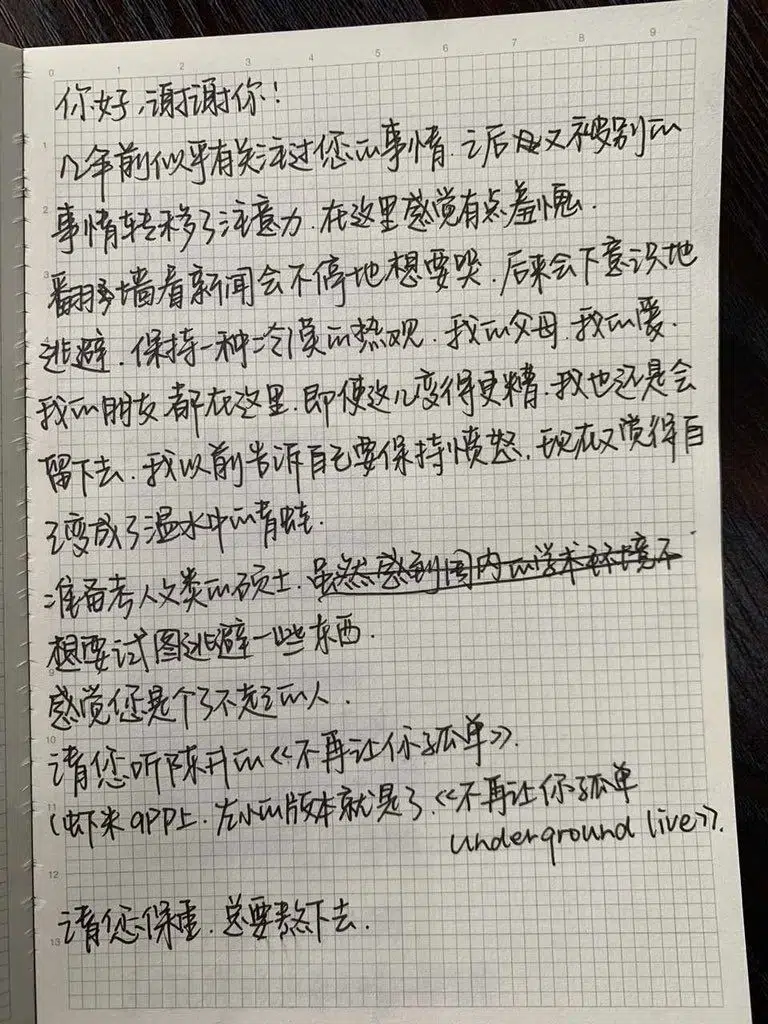 0 1 2 3 4 5 6 7 8 9
你好,谢谢你!
1
几年前似乎有关注过您的事情.之后又被别的
2
事情转移了注意力.在这里感觉有点羞愧.
3
翻墙看新闻会不停地想要哭.后来会下意识地
逃避.保持一种冷漠的热观.我的父母.我的爱.
我的朋友都在这里.即使这儿变得更糟.我也还是会
留下去.我以前告诉自己要保持愤怒.现在又觉得自
己变成了温水中的青蛙.
准备考人文类的硕士.虽然感到国内的学术环境不
想要试图逃避一些东西.
9
感觉您是个了不起的人.
10
请您听陈升的《不再让你孤单》.
11
(虾米app上.左小的版本就是了《不再让你孤单
underground live》).
12
请您保重.总要熬下去.
13